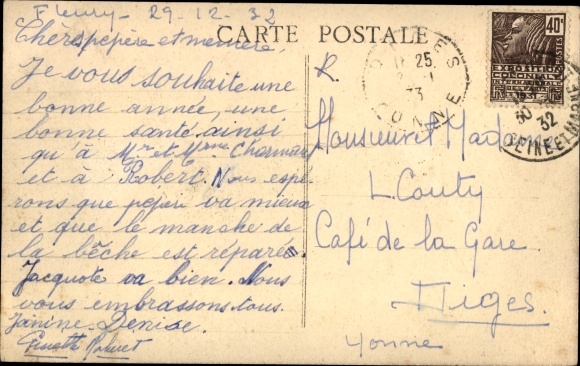 Fleury - 29-12-32
Chers pépère et mémère,
CARTE POSTALE
Je vous souhaite une
bonne année, une
bonne santé ainsi
qu'à Mr et Mme
et à Robert. Nous espé-
rons que pépère va mieux
et que le manche de
la bêche est réparé
Jacquote va bien. Nous
vous embrassons tous.
Janine. Denise.
40c
POSTES
EXPOSITION
COLONIALE
25
33
30
32
SEINE ET MARNE
Monsieur et Madame
L Couty
Café de la Gare
Diges
Yonne